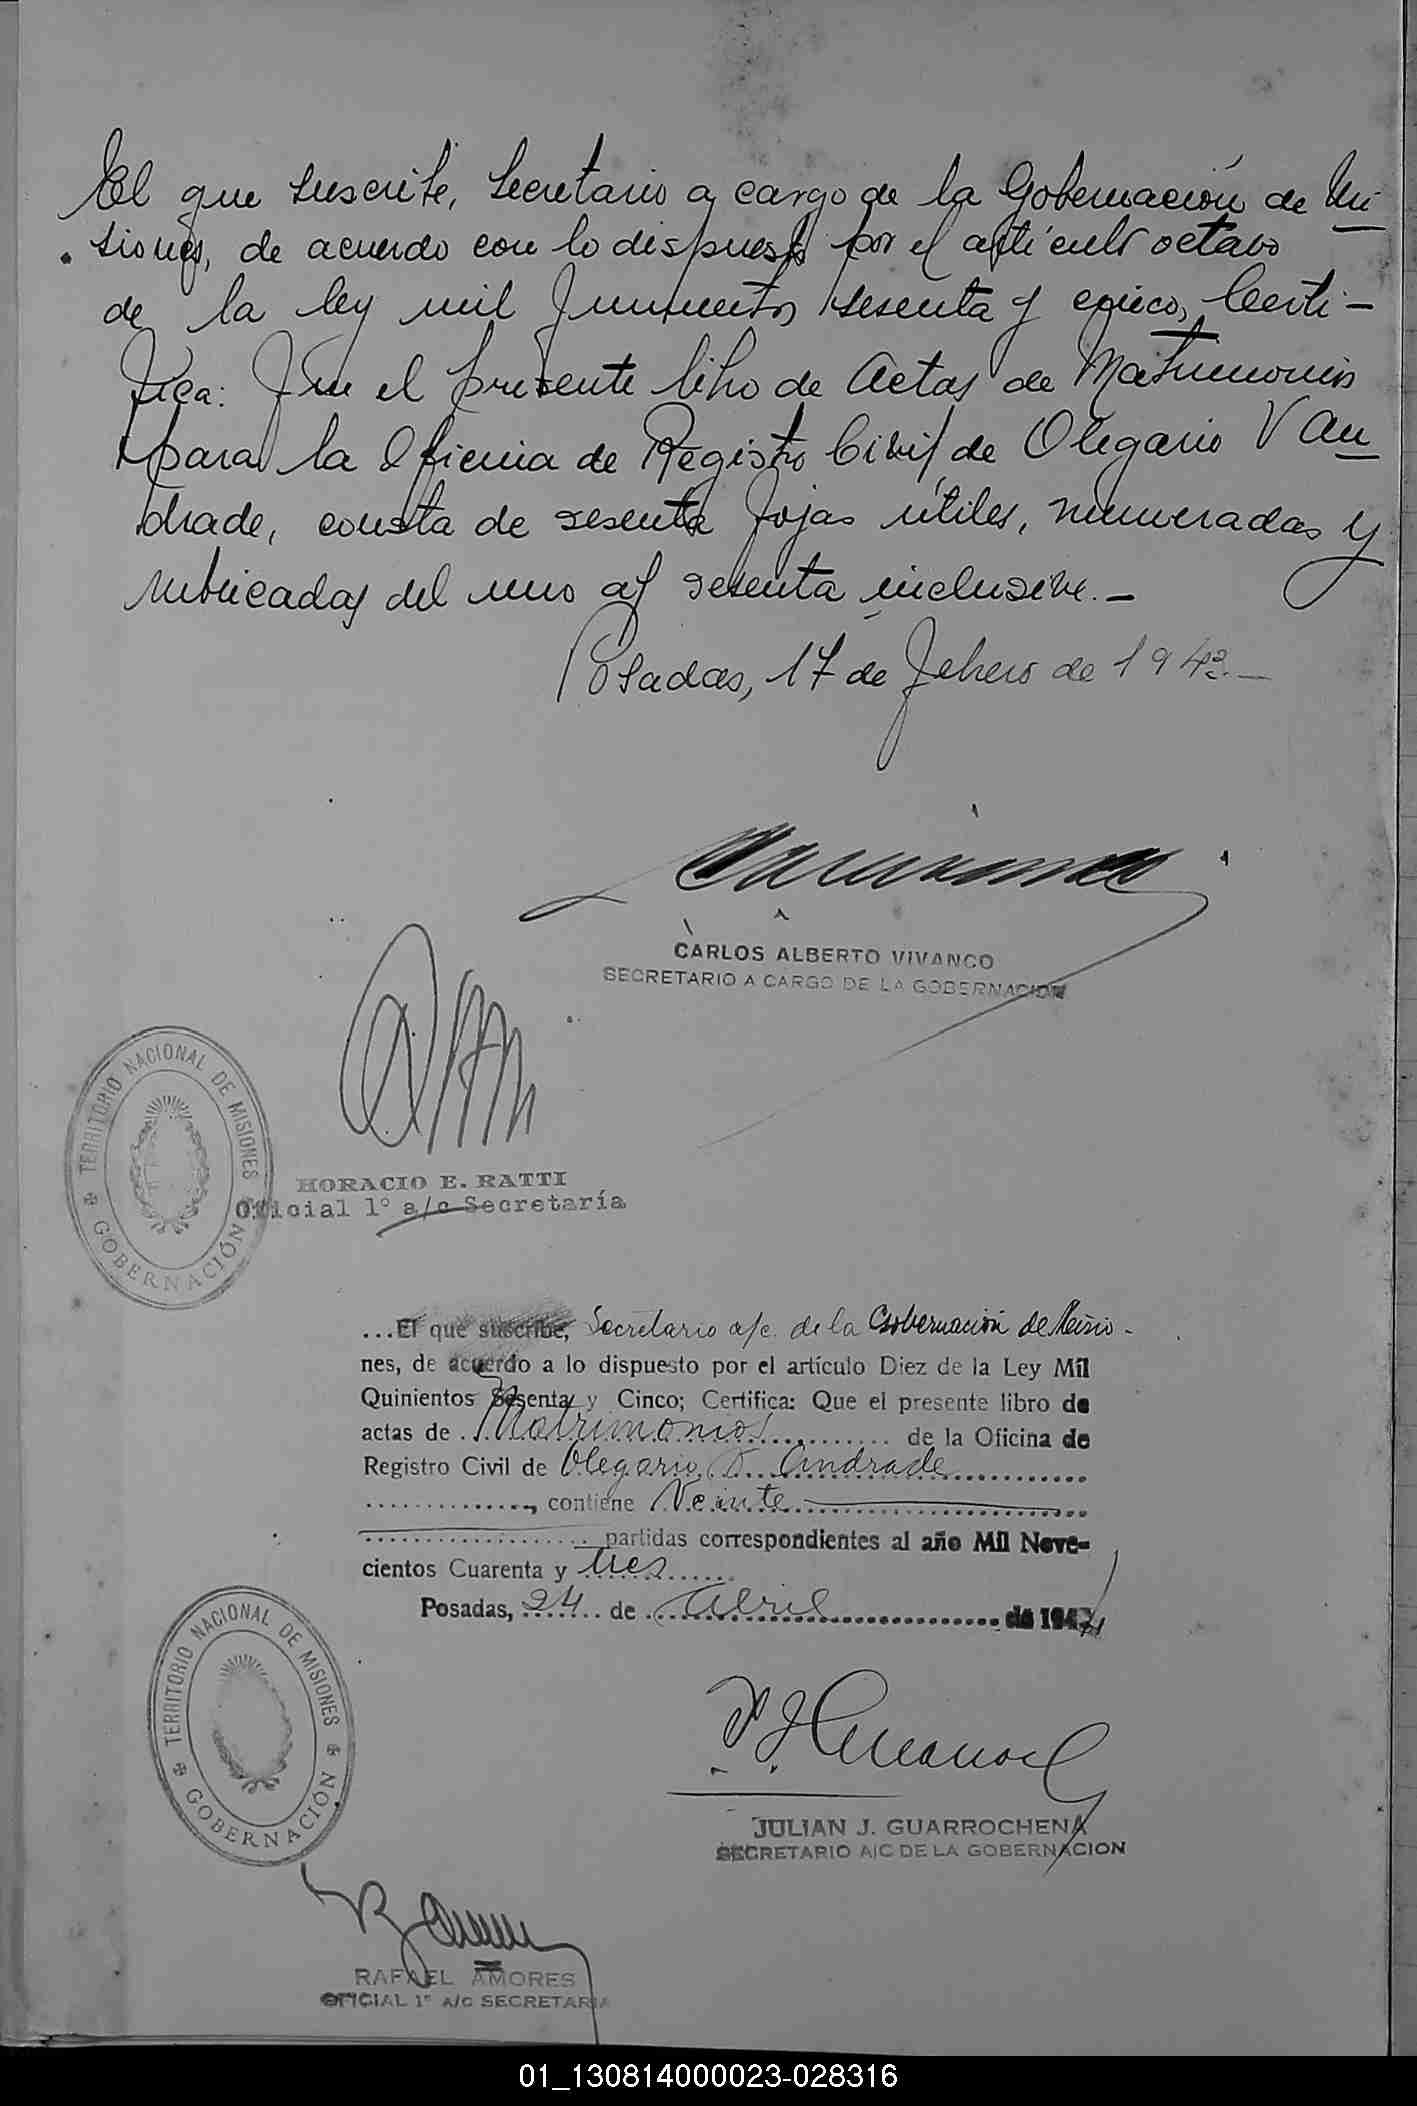 El que suscribe, Secretario a cargo de la Gobernación de Mi-
siones, de acuerdo con lo dispuesto por el artículo octavo
de la ley mil quinientos sesenta y cinco, Certi-
fica: Que el presente libro de Actas de Matrimonios
para la Oficina de Registro Civil de Olegario V An-
drade, consta de sesenta fojas útiles, numeradas y
rubricadas del uno al sesenta inclusive.-
Posadas, 17 de febrero de 1943.-
CARLOS ALBERTO VIVANCO
SECRETARIO A CARGO DE LA GOBERNACION
TERRITORIO NACIONAL DE MISIONES
GOBERNACIÓN
HORACIO E. RATTI
Oficial 1º a/c Secretaría
...El que suscribe, Secretario a/c. de la Gobernación de Misio-
nes, de acuerdo a lo dispuesto por el artículo Diez de la Ley Mil
Quinientos Sesenta y Cinco; Certifica: Que el presente libro de
actas de Matrimonios de la Oficina de
Registro Civil de Olegario V. Andrade
, contiene Veinte
partidas correspondientes al año Mil Nove-
cientos Cuarenta y tres
Posadas, 24 de Abril de 1944
TERRITORIO NACIONAL DE MISIONES
GOBERNACIÓN
JULIAN J. GUARROCHENA
SECRETARIO A/C DE LA GOBERNACION
RAFAEL AMORES
OFICIAL 1º A/C SECRETARIA
01_130814000023-028316